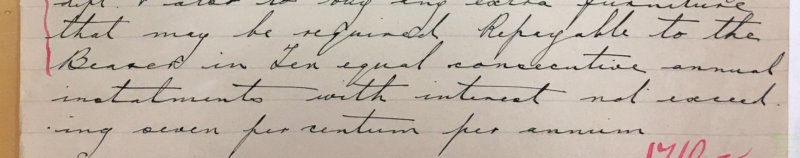 & also to buy any extra furniture
that may be required Repayable to the
Bearer in Ten equal consecutive annual
instalments with interest not exceed-
ing seven per centum per annum